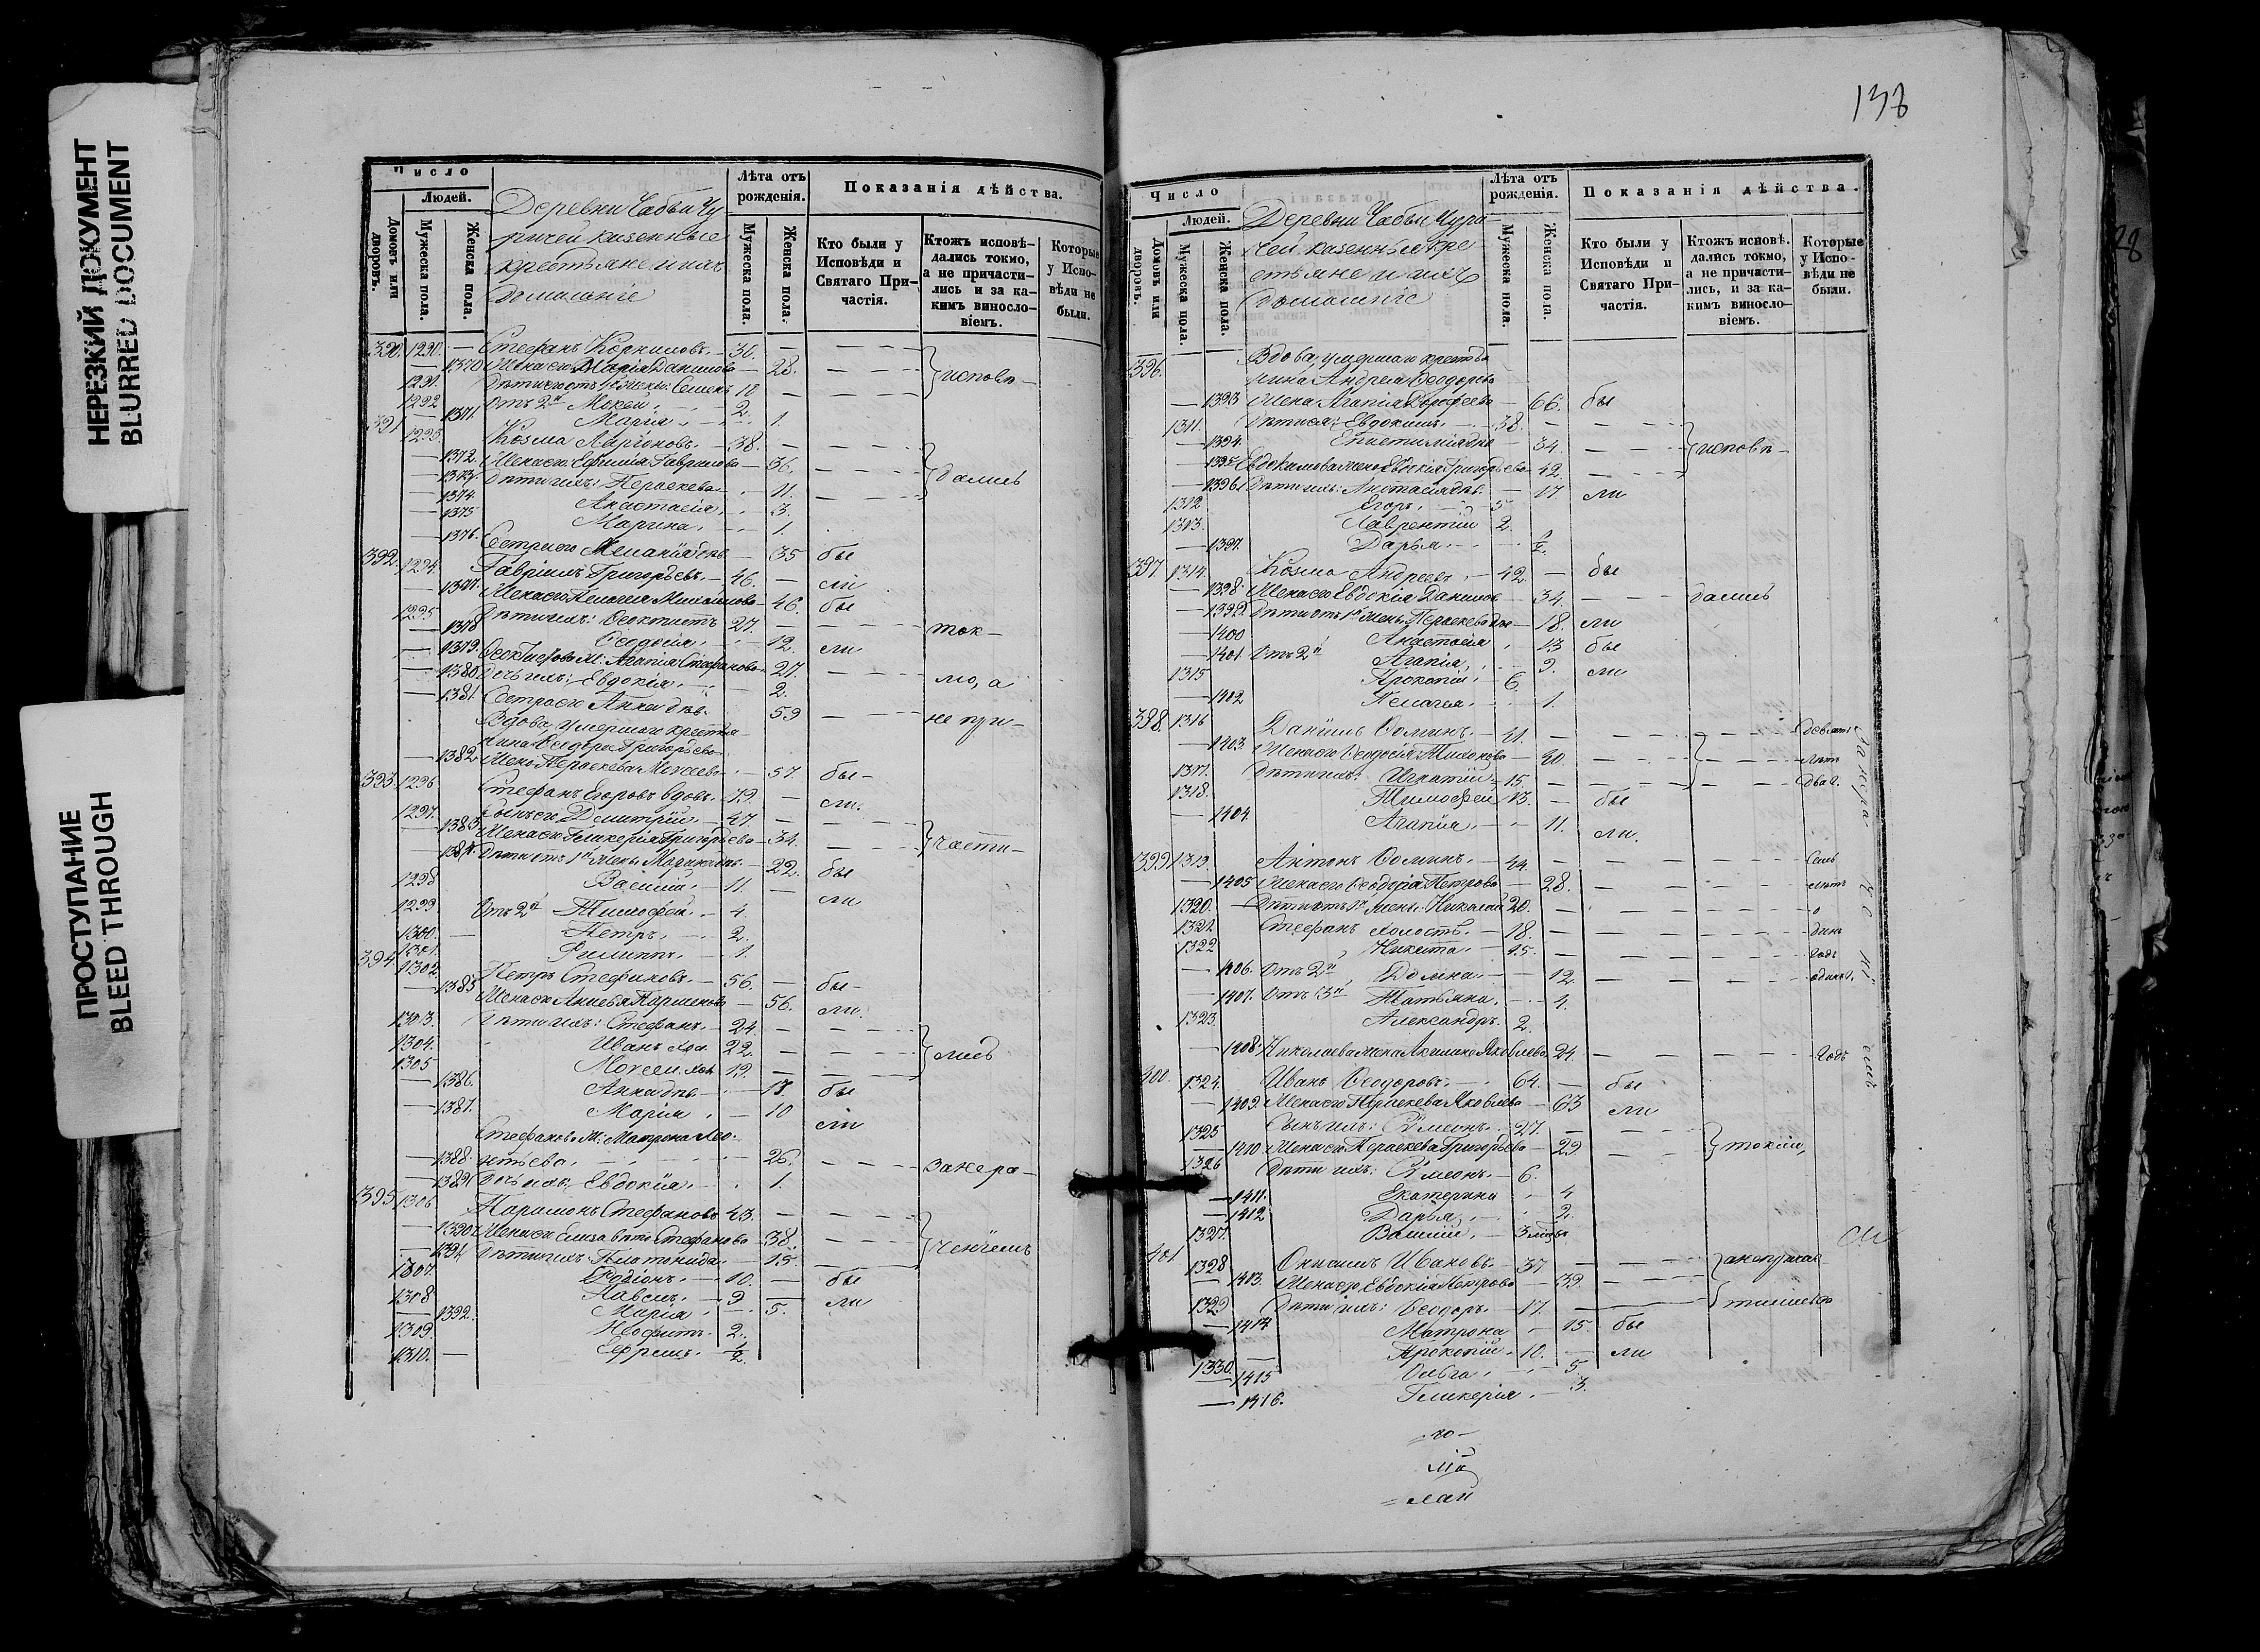 НЕРЕЗКИЙ ДОКУМЕНТ
BLURRED DOCUMENT
ПРОСТУПАНИЕ
BLEED THROUGH
Число
Людей.
Домовъ или дворовъ.
Мужеска пола.
Женска пола.
Деревни
казенные
крестьяне и ихъ
домашніе
Лѣта отъ рожденія.
Мужеска пола.
Женска пола.
Показанія дѣйства.
Кто были у Исповѣди и Святаго Причастія.
Ктожъ исповѣдались токмо, а не причастились и за какимъ винословіемъ.
Которые у Исповѣди не были.
390. 1290. — Стефанъ Корниловъ. 36. —
— 1370 Жена его Марія Данилова — 28. исповѣ-
1291. Семенъ 10
1292 Отъ 2й Мокей. 2.
— 1371. Марія. 1.
391 1293. Козма Ларіоновъ. 38. —
— 1372. Жена его Ефимія Гаврилова — 36.
— 1373. Дѣти ихъ: Параскева 11. дались
— 1374. Анастасія. 3.
— 1375 Марина. 1.
— 1376. Сестра его Меланія дѣв. 35 бы
392. 1294. Гавріилъ Григорьевъ. 46. — ли
— 1377. Жена его Пелагея Михаилова 46. бы
1295 Дѣти ихъ: Феоктистъ 27. —
— 1378 Феодосія. 12. ли ток-
— 1379. Агапія Стефанова 27.
— 1380 Дочь ихъ: Евдокія. 2. мо, а
— 1381. Сестра его Анна дѣв. 59 — не при-
Вдова, умершаго крестья-
нина Феодора Григорьева
— 1382 Жена Параскева Моисеева 57. бы-
393. 1296 Стефанъ Егоровъ вдовъ. 79. — ли.
1297. Сынъ его Димитрій. 47. —
— 1383 Жена его Гликерія Григорьева 34. части-
— 1384. Дѣти отъ 1й жены 22. бы
1298 Василій. 11. —
1299. Отъ 2й Тимофей. 4. ли
1300. — Петръ. 2.
1301. Филиппъ. 1.
394. 1302. Петръ Стефановъ. 56. — бы-
— 1385 Жена его — 56. ли.
1303. Дѣти ихъ: Стефанъ. 24. —
1304. Иванъ хол. 22. — лись
1305 Моисей хол. 19. —
— 1386. Анна дѣв. 17. бы
— 1387. Марія 10 ли
Матрона Лео-
— 1388. нтьева. 26. занера-
— 1389. Дочь ихъ: Евдокія. 1.
395 1306 Парамонъ Стефановъ 43. —
— 1390. Жена его Елизавета Стефанова 38.
— 1391. Дѣти ихъ 15. ченіемъ
1307. Родіонъ. 10. — бы
1308 Павелъ. 9 ли
— 1392. Марія 5.
1309. Неофитъ. 2.
1310. — Ефремъ. 1/2.
138
Число
Людей.
Домовъ или дворовъ.
Мужеска пола.
Женска пола.
Деревни
казенные кре-
стьяне и ихъ
домашніе
Лѣта отъ рожденія.
Мужеска пола.
Женска пола.
Показанія дѣйства.
Кто были у Исповѣди и Святаго Причастія.
Ктожъ исповѣ. дались токмо, а не причастились, и за какимъ винословіемъ.
Которые у Исповѣди не были.
396. Вдова, умершаго крестья
нина Андрея Феодорова
— 1393 Жена Агапія Дорофеева 66. бы
1311. Дѣти ея: Евдокимъ. 38. —
— 1394. 34. исповѣ-
— 1395 Евдокимова жена Евдокія Григорьева 42.
— 1396. Дѣти ихъ: Анастасія дѣв. 17 ли
1312 Егоръ. 5
1313. Лаврентій 2.
— 1397. Дарья. 1/2.
397 1314. Козма Андреевъ. 42 — бы
— 1398. Жена его Евдокія Данилова 34. — дались
— 1399. Дѣти отъ 1й жены Параскева дѣв 18. ли
— 1400 Анастасія 13 бы
— 1401 Отъ 2й Агапія. 9. ли
1315 Прокопій. 6.
— 1402 Пелагея. 1.
398. 1316 Даніилъ Фоминъ. 41. — девять
— 1403. Жена его Феодосія Тихонова 40. лѣтъ
1317. Дѣти ихъ: Игнатій 15. два г.
1318. Тимофей 13. — бы
— 1404 Агапія. 11. ли.
399 1319. Антонъ Фоминъ. 44. — семь
— 1405 Жена его Феодора Петрова 28. лѣтъ
1320. Дѣти отъ 1й жены: Николай 20. о
1321 Стефанъ холостъ. 18. динъ
1322 Никита. 15. годъ
— 1406. Отъ 2й Домна. 12. одинъ г.
— 1407. Отъ 3й Татьяна. 4.
1323. Александръ. 2.
— 1408. Николаева жена Акилина Яковлева 24 — годъ
400. 1324. Иванъ Феодоровъ. 64. — бы
— 1409. Жена его Параскева Яковлева 63 ли
1325 Сынъ ихъ: Симеонъ. 27. —
— 1410 Жена его Параскева Григорьева 29 токмо,
1326 Дѣти ихъ: Симеонъ. 6.
— 1411. Екатерина 4
— 1412 Дарья. 2.
1327. Василій.
401 1328 Онисимъ Ивановъ. 37
— 1413. Жена его Евдокія Петрова 39.
1329 Дѣти ихъ: Феодоръ. 17. —
— 1414 Матрона 15. бы
1330. — Прокопій. 10. — ли
— 1415 Ольга. 5.
— 1416. Гликерія. 3.